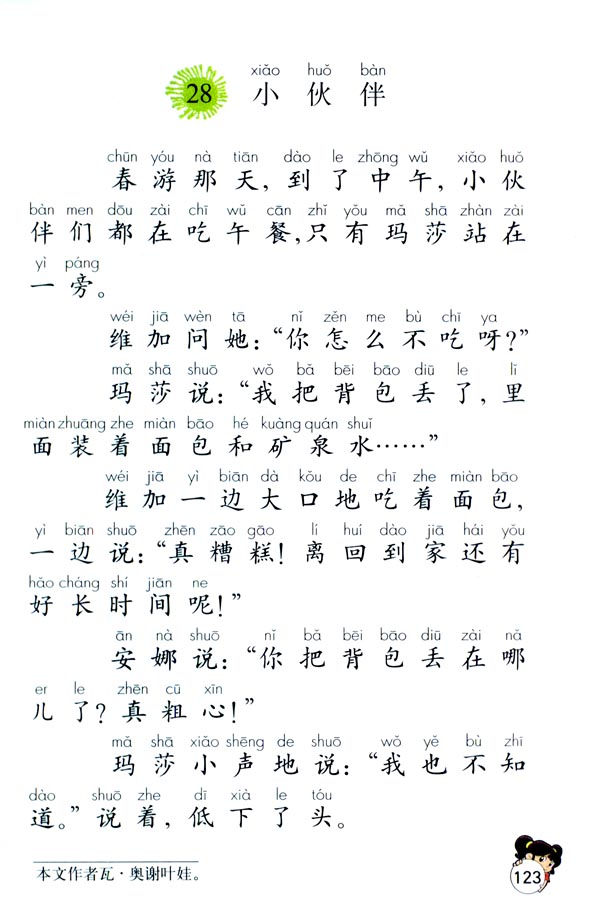 xiǎo huǒ bàn
28 小伙伴
chūn yóu nà tiān dào le zhōng wǔ xiǎo huǒ
春游那天，到了中午，小伙
bàn men dōu zài chī wǔ cān zhǐ yǒu mǎ shā zhàn zài
伴们都在吃午餐，只有玛莎站在
yì páng
一旁。
wéi jiā wèn tā nǐ zěn me bù chī ya
维加问她：“你怎么不吃呀？”
mǎ shā shuō wǒ bǎ bēi bāo diū le lǐ
玛莎说：“我把背包丢了，里
miàn zhuāng zhe miàn bāo hé kuàng quán shuǐ
面装着面包和矿泉水……”
wéi jiā yì biān dà kǒu de chī zhe miàn bāo
维加一边大口地吃着面包，
yì biān shuō zhēn zāo gāo lí huí dào jiā hái yǒu
一边说：“真糟糕！离回到家还有
hǎo cháng shí jiān ne
好长时间呢！”
ān nà shuō nǐ bǎ bēi bāo diū zài nǎ
安娜说：“你把背包丢在哪
er le zhēn cū xīn
儿了？真粗心！”
mǎ shā xiǎo shēng de shuō wǒ yě bù zhī
玛莎小声地说：“我也不知
dào shuō zhe dī xià le tóu
道。”说着，低下了头。
本文作者瓦·奥谢叶娃。
123